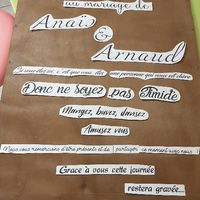 au mariage de
Anaïs
&
Arnaud
Si vous êtes ici, c'est que vous êtes une personne qui nous est chère
Donc ne soyez pas Timide
Mangez, buvez, dansez
Amusez vous
Nous vous remercions d'être présents et de partager ce moment avec nous
Grace à vous cette journée
restera gravée...